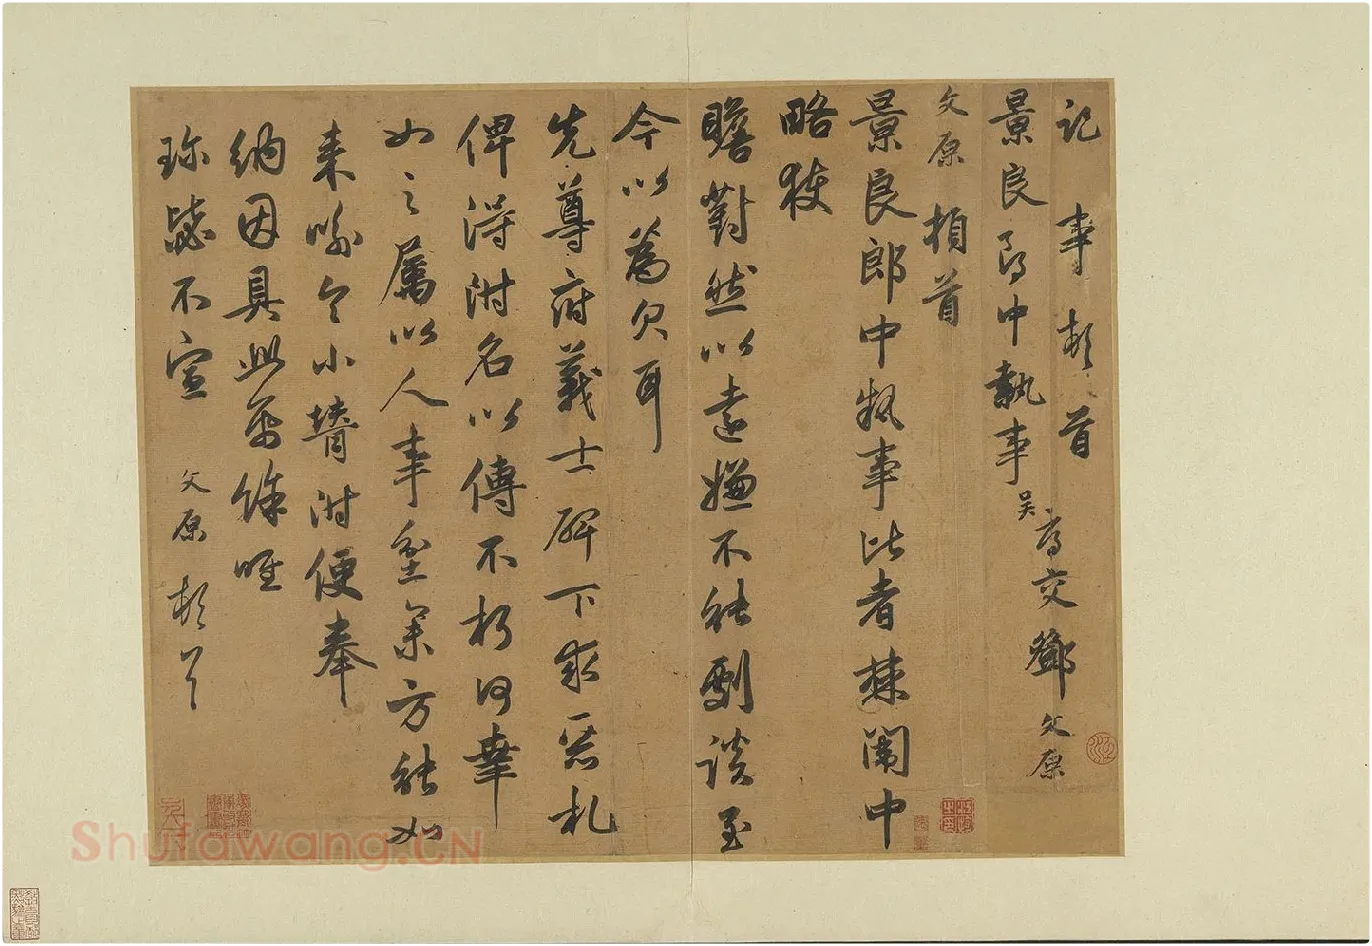 記事頓首
景良郎中執事
吳 交鄧文原
文原頓首
景良郎中執事比者棘闈中
略獲
瞻對然以遠嫌不能劇談至
今以為欠耳
先尊府義士碑下求惡札
俾得附名以傳不朽何幸
如之屬以人事坌集方能如
來喻令小胥附便奉
納因具此 餘唯
珍毖不宣 文原頓首
Shufawang.CN